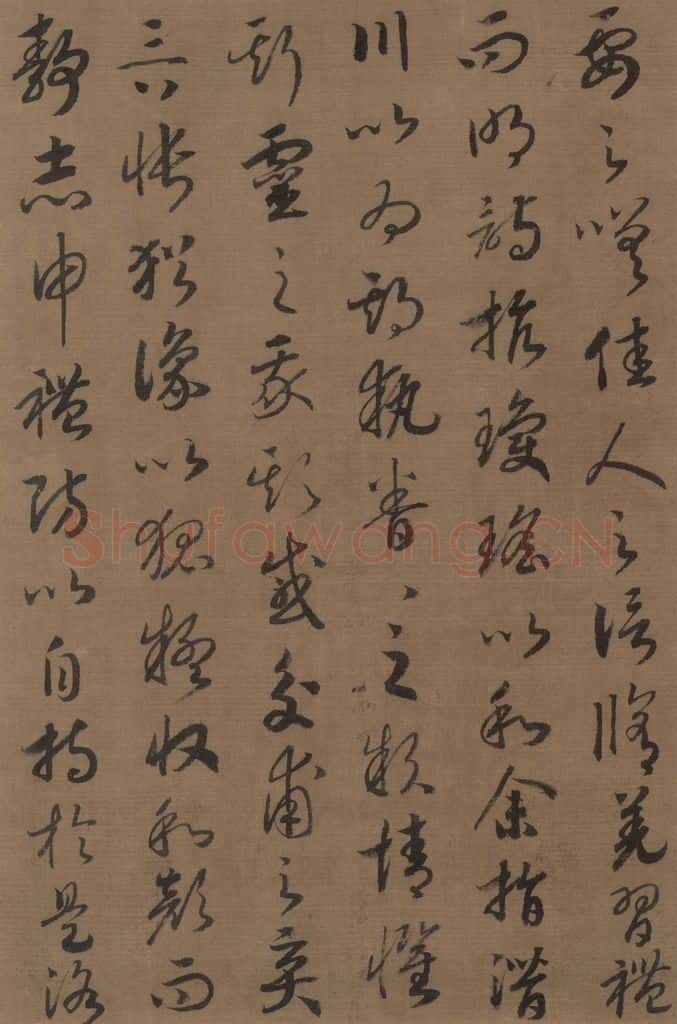 要之嗟佳人之信脩羌習禮
而明詩抗瓊瑤以和余指潛
川以為期執眷〻之款情懼
斯靈之我欺感交甫之棄
言悵猶豫以狐疑收和顏而
靜志申禮防以自持於是洛
Shufawang.CN